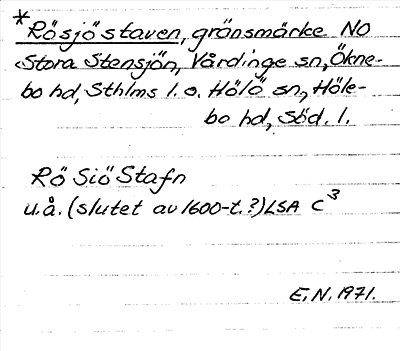 *Rösjöstaven, gränsmärke NO
Stora Stensjön, Vårdinge sn, Økne-
bo hd, Sthlms l. o. Hölö sn, Höle-
bo hd, Söd. l.
Rö Siö Stafn
u.å. (slutet av 1600-t.?) LSA C³
E.N. 1971.